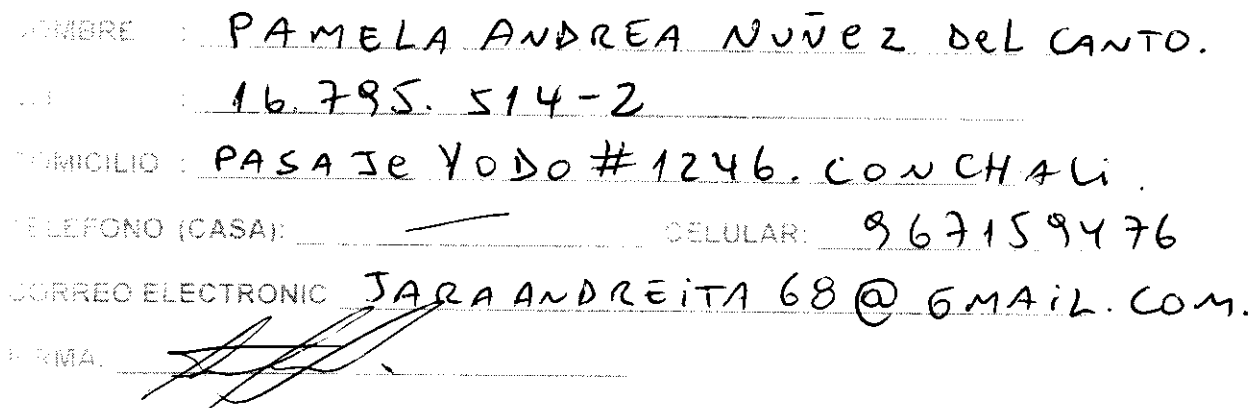 NOMBRE : PAMELA ANDREA NUÑEZ DEL CANTO.
: 16.795.514-2
DOMICILIO : PASAJE YODO #1246. CONCHALi.
TELEFONO (CASA): — CELULAR: 967159476
CORREO ELECTRONIC JARAANDREiTA68@GMAiL.COM.
FIRMA.